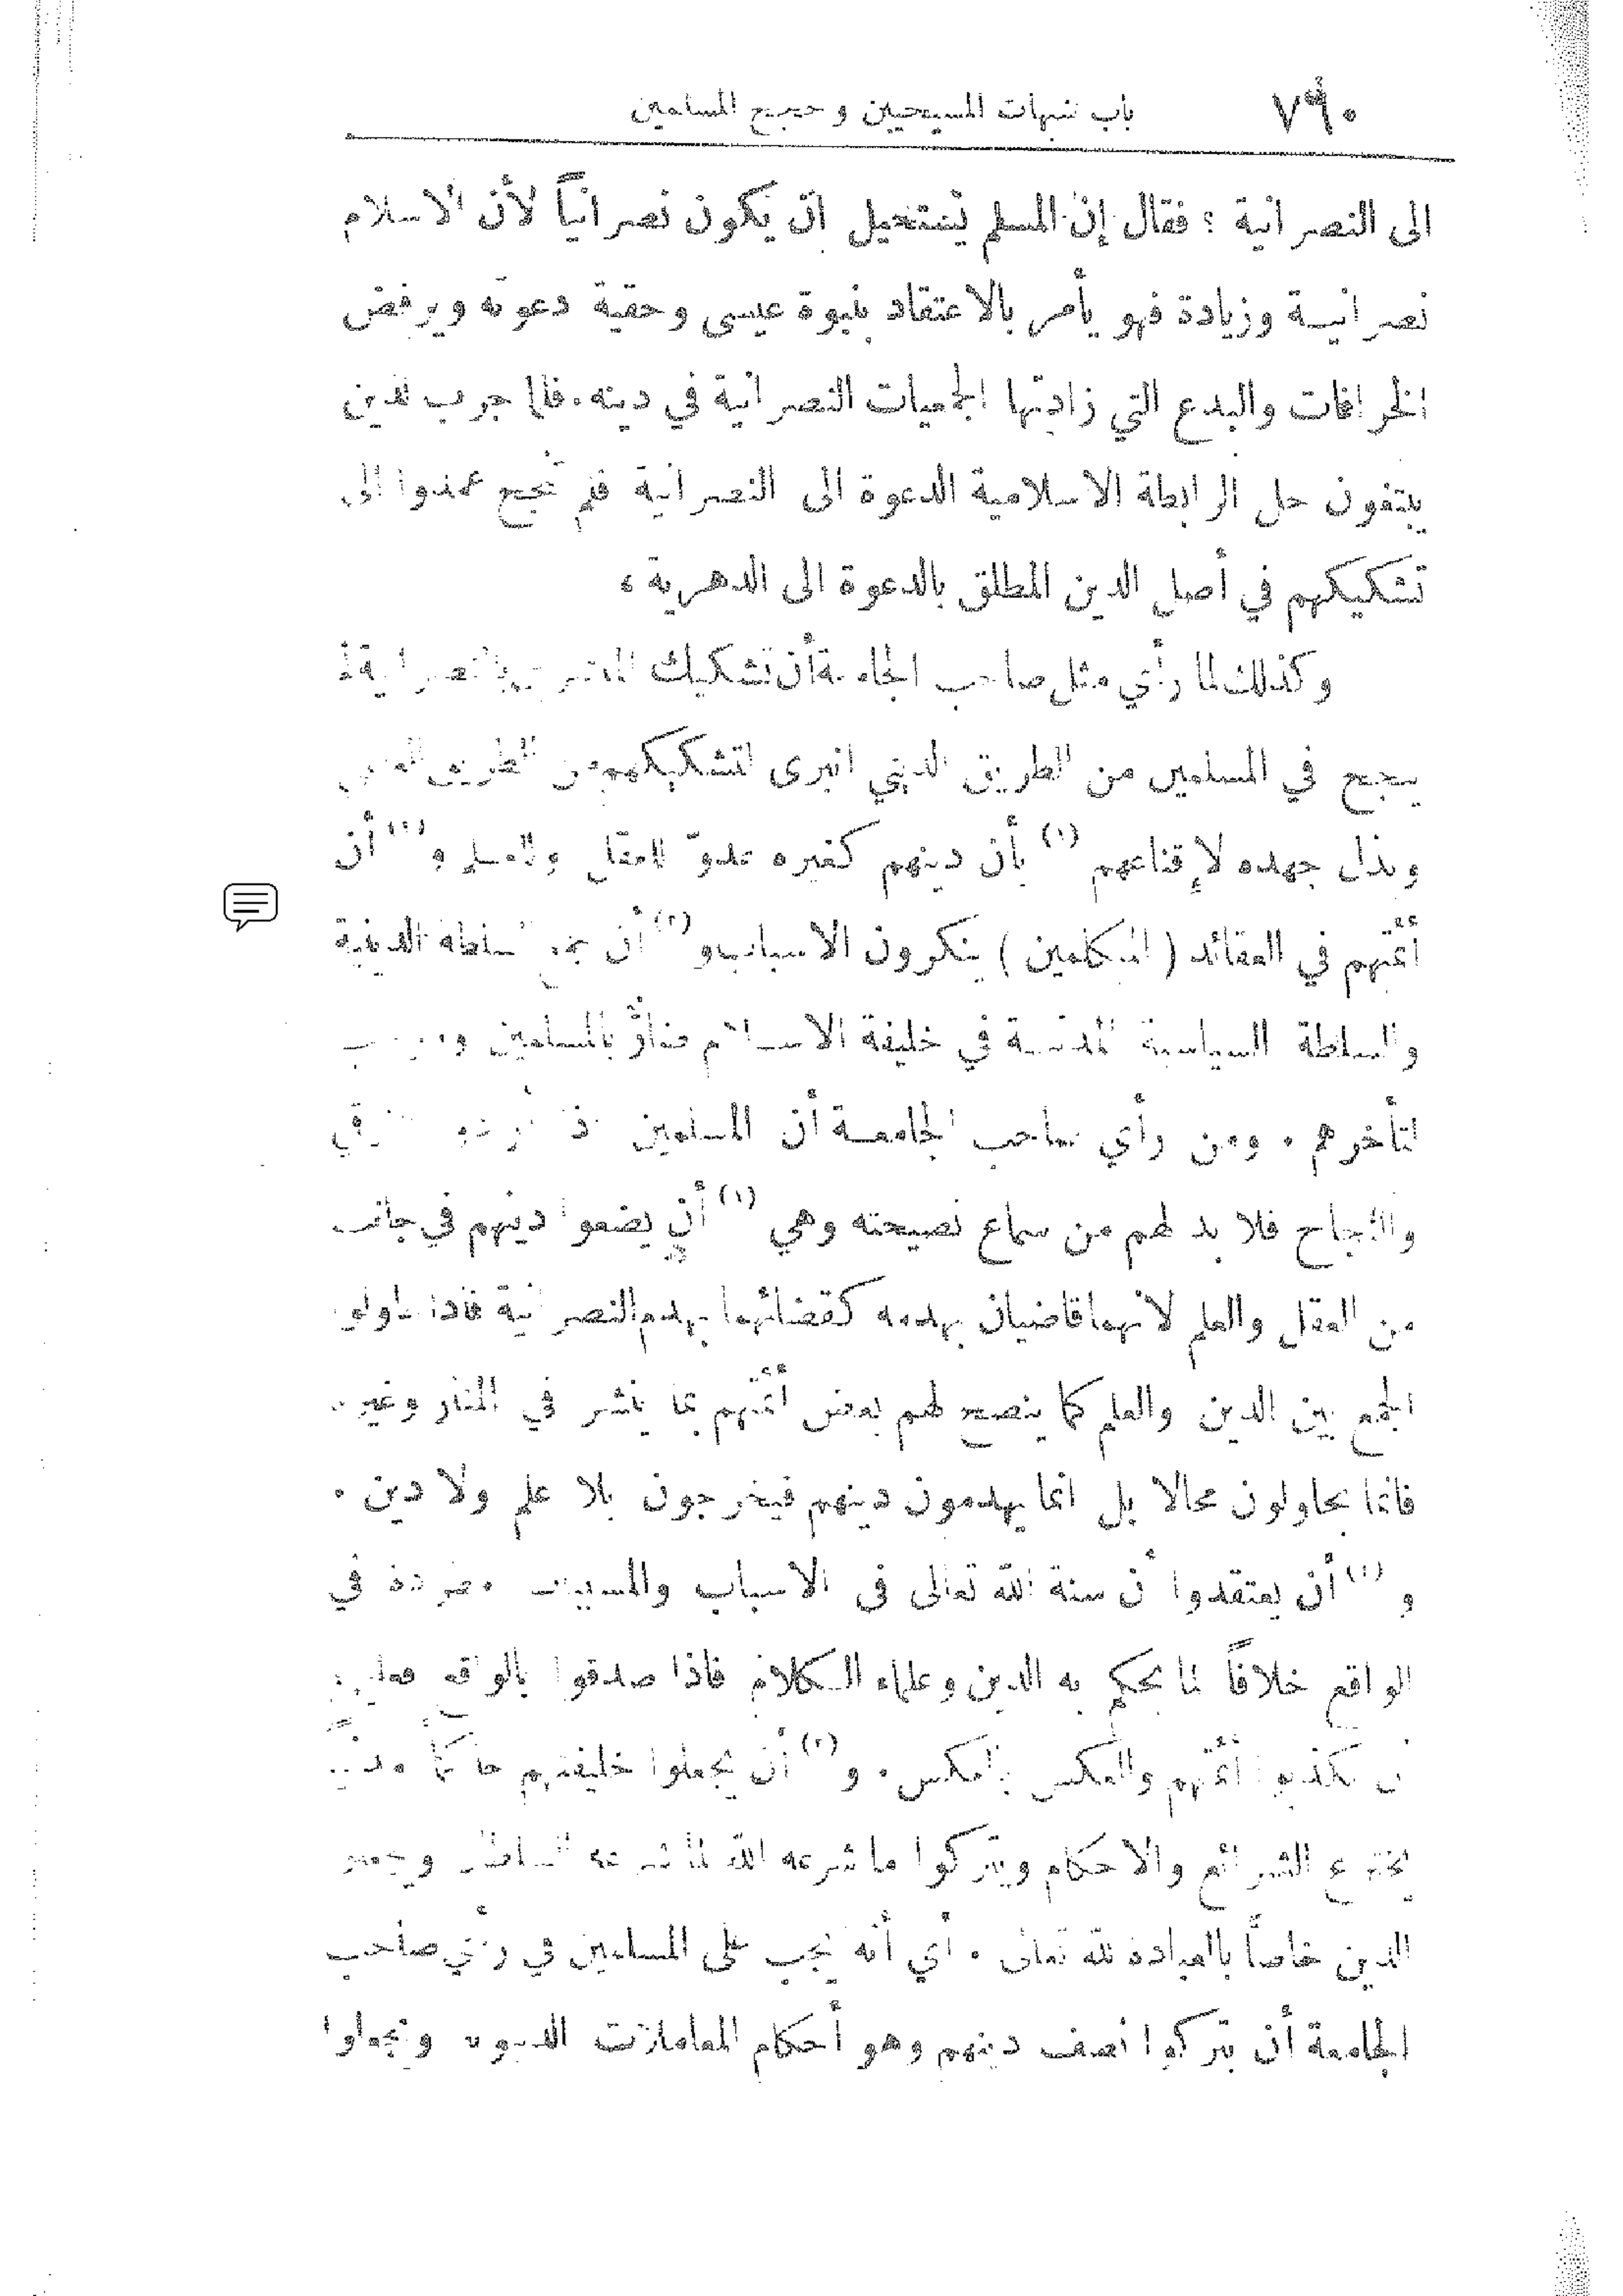 باب شبهات المسيحيين وحجج المسلمين
٧٩٠
الى النصرانية ؛ فقال إن المسلم يستحيل ان يكون نصرانياً لأن الاسلام
نصرانية وزيادة فهو يأمر بالاعتقاد بنبوة عيسى وحقية دعوته ويرفض
الخرافات والبدع التي زادتها الجمعيات النصرانية في دينه. فلما جرب الذين
يبتغون حل الرابطة الاسلامية الدعوة الى النصرانية فلم تنجح عمدوا الى
تشكيكهم في أصل الدين المطلق بالدعوة الى الدهرية ،
وكذلك لما رأى مثل صاحب الجامعة أن تشكيك
ينجح في المسلمين من الطريق الديني انبرى لتشكيكهم من الطريق
وبذل جهده لإقناعهم (١) بأن دينهم كغيره عدوّ للعقل والعلم و(٢) أن
أئمتهم في العقائد (المتكلمين) ينكرون الاسباب و(٣) أن السلطة الدينية
والسلطة السياسية في خليفة الاسلام ضارٌّ بالمسلمين
لتأخرهم . ومن رأي صاحب الجامعة أن المسلمين
والنجاح فلا بد لهم من سماع نصيحته وهي (١) أن يضعوا دينهم في جانب
من العقل والعلم لانهما قاضيان بهدمه كقضائهما بهدم النصرانية فاذا حاولوا
الجمع بين الدين والعلم كما ينصح لهم بعض أئمتهم بما ينشر في المنار وغيره
فانما يحاولون محالا بل انما يهدمون دينهم فيخرجون بلا علم ولا دين .
و(٢) أن يعتقدوا أن سنة الله تعالى في الاسباب والمسببات في
الواقع خلافاً لما يحكم به الدين وعلماء الكلام فاذا صدقوا بالواقع
أئمتهم والعكس بالعكس . و(٣) أن يجعلوا خليفتهم حاكما
يخترع الشرائع والاحكام ويتركوا ما شرعه الله لما شرعه
الدين خاصاً بالعبادة لله تعالى . أي أنه يجب على المسلمين في رأي صاحب
الجامعة أن يتركوا نصف دينهم وهو أحكام المعاملات الدنيوية ويجعلوا